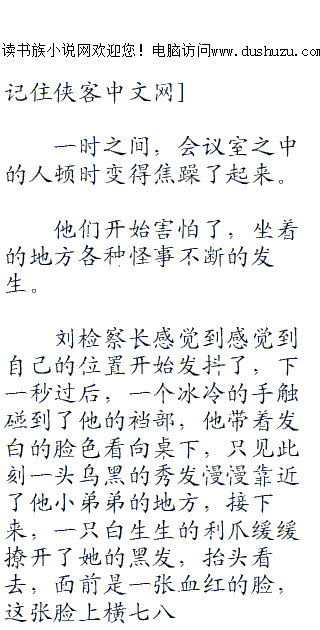 读书族小说网欢迎您！电脑访问www.dushuzu.com
记住侠客中文网]
一时之间，会议室之中
的人顿时变得焦躁了起来。
他们开始害怕了，坐着
的地方各种怪事不断的发
生。
刘检察长感觉到感觉到
自己的位置开始发抖了，下
一秒过后，一个冰冷的手触
碰到了他的裆部，他带着发
白的脸色看向桌下，只见此
刻一头乌黑的秀发慢慢靠近
了他小弟弟的地方，接下
来，一只白生生的利爪缓缓
撩开了她的黑发，抬头看
去，面前是一张血红的脸，
这张脸上横七八